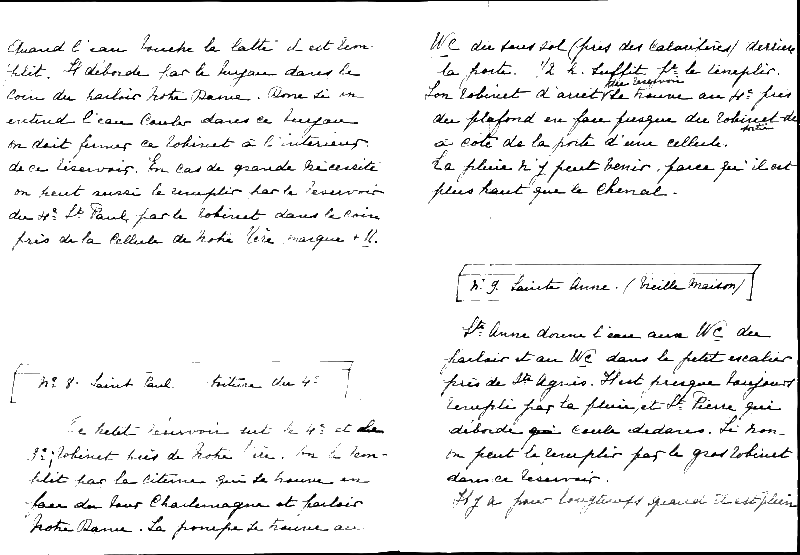 Quand l'eau touche la latte il est rem-
plit. Il déborde par le tuyau dans le
coin du parloir Notre Dame. Donc si on
entend l'eau couler dans ce tuyau
on doit fermer ce robinet à l'intérieur
de ce réservoir. En cas de grande nécessité
on peut aussi le remplir par le réservoir
du 4e St Paul, par le robinet dans le coin
près de la cellule de Notre Mère, marque + 11.
No 8. Saint Paul toiture du 4e
Ce petit réservoir sert le 4e et le
3e, robinet près de Notre Mère. On le rem-
plit par la citerne qui se trouve en
face du tour Charlemagne et parloir
Notre Dame. La pompe se trouve au
WC du sous sol (près des calorifères) derrière
la porte. 1/2 h. suffit pr le remplir.
Son robinet d'arrêt du réservoir se trouve au 4e près
du plafond en face presque du robinet de
sortie
à côté de la porte d'une cellule.
La pluie n'y peut venir, parce qu'il est
plus haut que le chenal.
No 9. Sainte Anne. (Vieille Maison)
Ste Anne donne l'eau aux WC du
parloir et au WC dans le petit escalier
près de Ste Agnès. Il est presque toujours
rempli par la pluie, et St Pierre qui
déborde coule dedans. Si non-
on peut le remplir par le gros robinet
dans ce réservoir.
Il y a pour longtemps quand il est plein